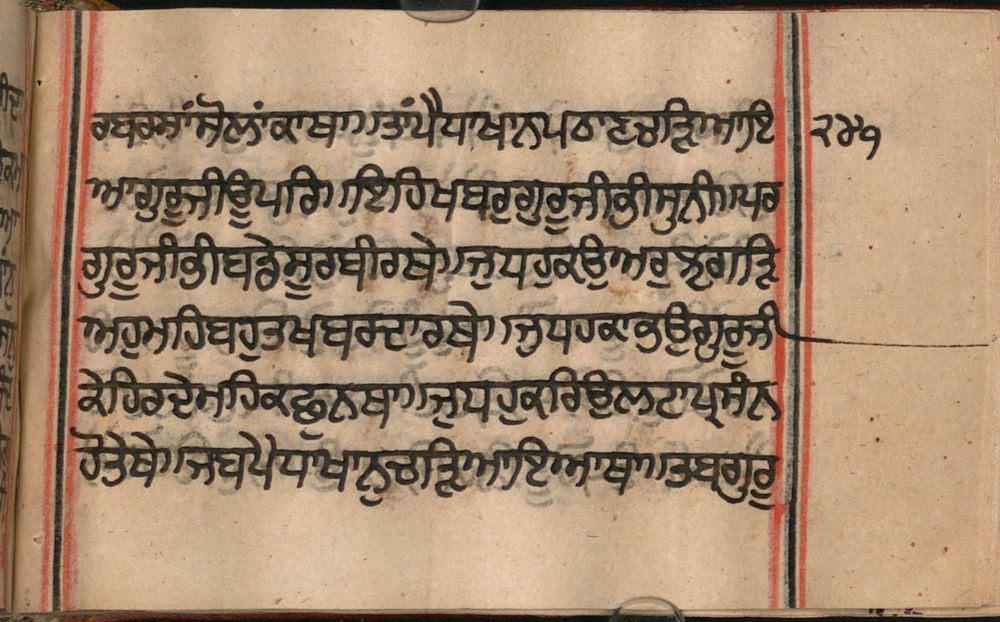 ਰਬਰਸਾਂ ਮੋਲਾਂ ਕਾ ਥਾ॥ ਤਾਂ ਪੈਧਾ ਖਾਨ ਪਠਾਣ ਚੜਿ ਆਇ ੨੪੧
ਆ ਗੁਰੂ ਜੀ ਊਪਰਿ॥ ਇਹਿ ਖਬਰੁ ਗੁਰੂ ਜੀ ਭੀ ਸੁਨੀ॥ ਪਰ
ਗੁਰੂ ਜੀ ਭੀ ਬਡੇ ਸੂਰਬੀਰ ਥੇ॥ ਜੁਧਹੁ ਕਉ ਅਰੁ
ਅਰੁ ਮਹਿ ਬਹੁਤ ਖਬਰਦਾਰ ਥੇ॥ ਜੁਧਹ ਕਾ ਭਉ ਗੁਰੂ ਜੀ
ਕੇ ਹਿਰਦੇ ਮਹਿ ਕਛੁ ਨ ਥਾ॥ ਜੁਧਹੁ ਕਰਿ ਉਲਟਾ ਪ੍ਰਸੰਨ
ਹੋਤੇ ਥੇ॥ ਜਬ ਪੈਧਾ ਖਾਨੁ ਚੜਿ ਆਇਆ ਥਾ॥ ਤਬ ਗੁਰੂ